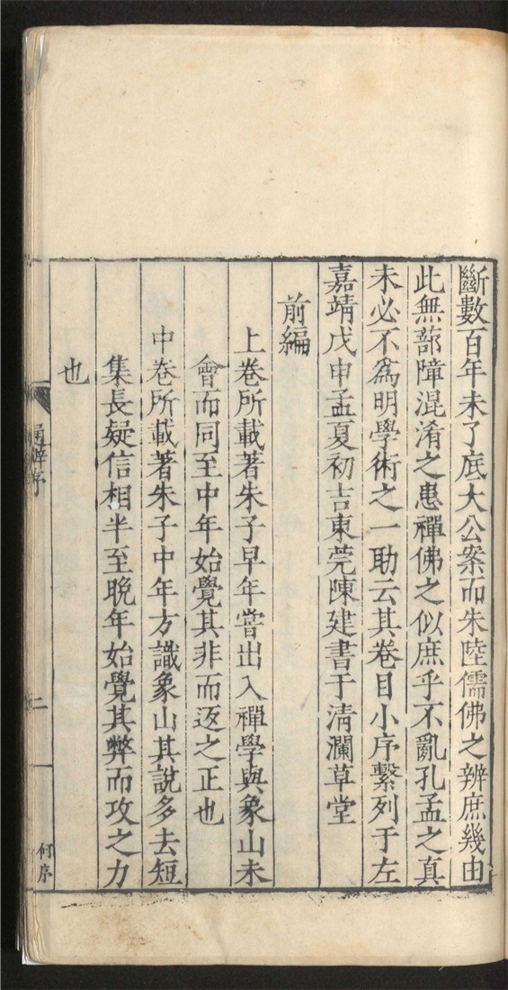 斷數百年未了底大公案而朱陸儒佛之辨庶幾由
此無蔀障混淆之患禪佛之似庶乎不亂孔孟之真
未必不爲明學術之一助云其卷目小序繫列于左
嘉靖戊申孟夏初吉東莞陳建書于清瀾草堂
前編
上卷所載著朱子早年嘗出入禪學與象山未
會而同至中年始覺其非而返之正也
中卷所載著朱子中年方識象山其說多去短
集長疑信相半至晚年始覺其弊而攻之力
也
通辨序
二
何序